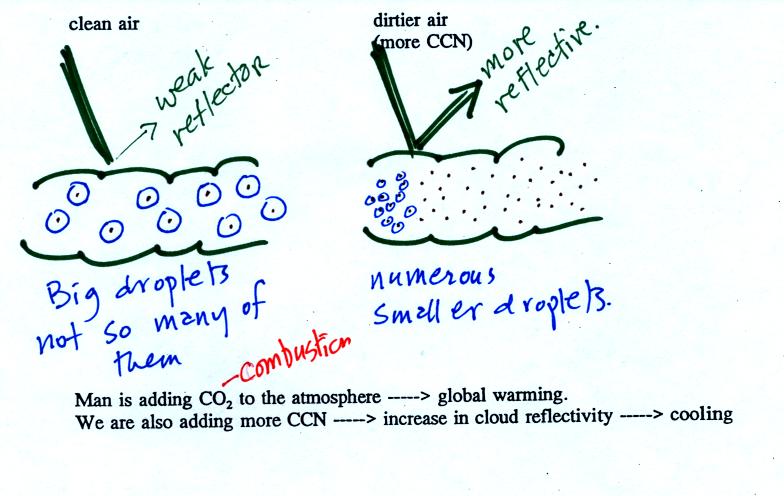 clean air
weak
reflector
dirtier air
(more CCN)
more
reflective.
Big droplets
not so many of
them
numerous
smaller droplets.
-combustion
Man is adding CO₂ to the atmosphere -----> global warming.
We are also adding more CCN -----> increase in cloud reflectivity -----> cooling